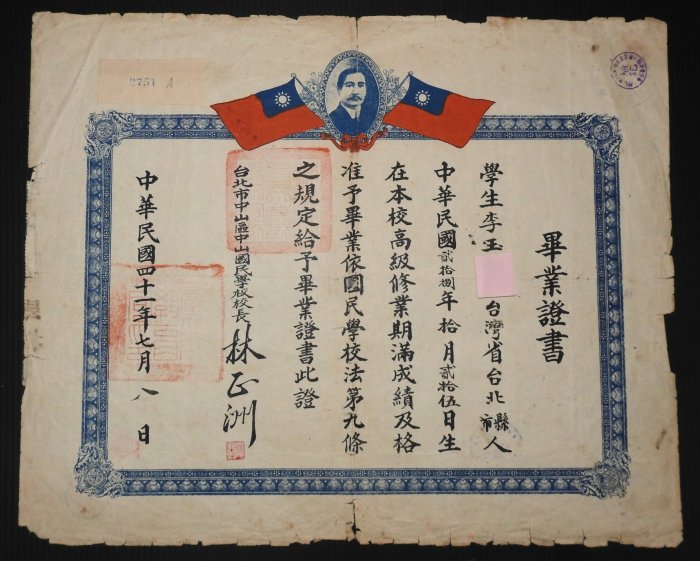 畢業證書
學生李玉 台灣省台北縣市人
中華民國貳拾捌年拾月貳拾伍日生
在本校高級修業期滿成績及格
准予畢業依國民學校法第九條
之規定給予畢業證書此證
台北市中山區中山國民學校校長 林正洲
中華民國四十一年七月八日
2751 A